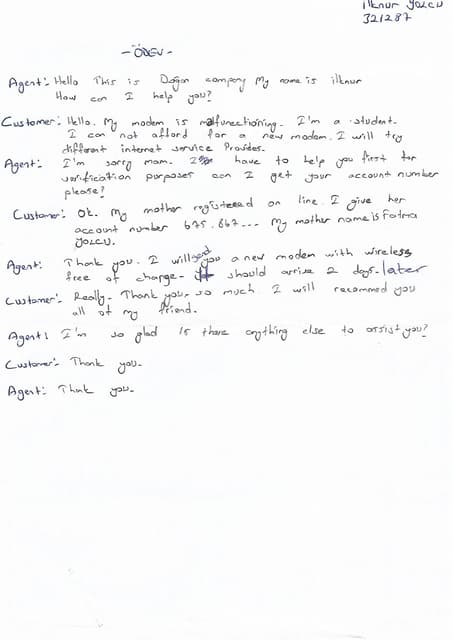 ilknur YOLCU
321287
-ÖDEV-
Agent: Hello This is Dogan company My name is ilknur
How can I help you?
Customer: Hello. My modem is malfunctioning. I'm a student.
I can not afford for a new modem. I will try
different internet service Provides.
Agent: I'm sorry mam. I have to help you first for
verification purposes can I get your account number
please?
Customer: Ok. My mother registered on line I give her
account number 675.867... My mother name is Fatma
YOLCU.
Agent: Thank you. I will send you a new modem with wireless
free of charge. It should arrive 2 days later
Customer: Really. Thank you so much I will recommed you
all of my friend.
Agent: I'm so glad Is there anything else to assist you?
Customer: Thank you.
Agent: Thank you.